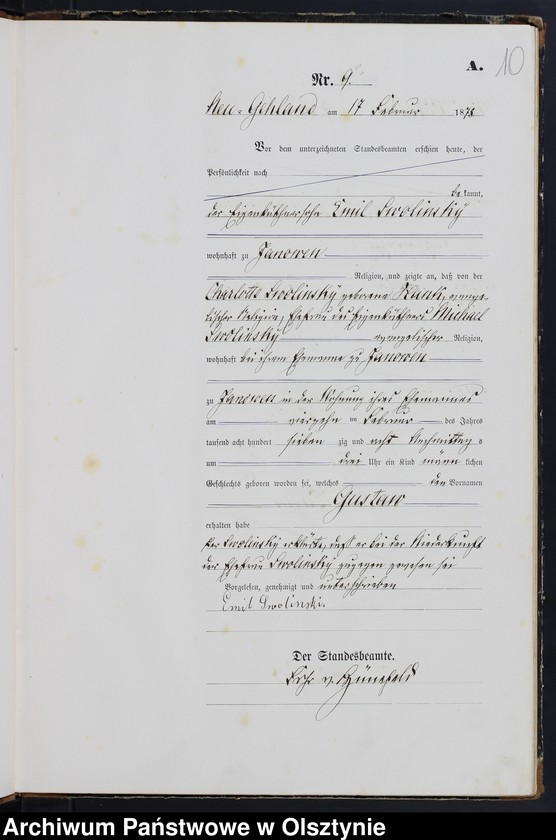 10
A.
Nr. 9.
Neu-Gehland am 17 Februar 1878
Vor dem unterzeichneten Standesbeamten erschien heute, der
Persönlichkeit nach
be kannt,
der Eigenkäthnersohn Emil Swolinsky
wohnhaft zu Janowen
Religion, und zeigte an, daß von der
Charlotte Swolinsky geborene evange-
lischer Religion, Ehefrau des Eigenkäthners Michael
Swolinsky evangelischer Religion,
wohnhaft bei ihrem Ehemanne zu Janowen
zu Janowen in der Wohnung ihres Ehemannes
am vierzehn ten Februar des Jahres
tausend acht hundert sieben zig und acht Nachmittags
um drei Uhr ein Kind männ lichen
Geschlechts geboren worden sei, welches den Vornamen
Gustav
erhalten habe
Der Swolinsky erklärte, daß er bei der Niederkunft
der Ehefrau Swolinsky zugegen gewesen sei
Vorgelesen, genehmigt und unterschrieben
Emil Swolinski.
Der Standesbeamte.
Frhr v.
Archiwum Państwowe w Olsztynie